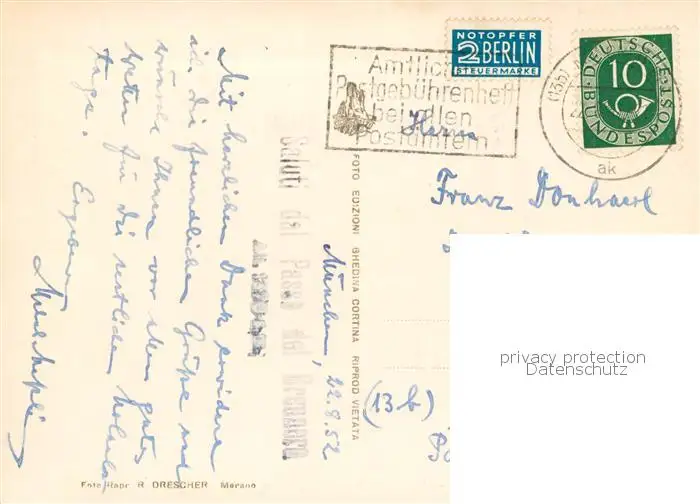 NOTOPFER
2 BERLIN
STEUERMARKE
DEUTSCHE BUNDESPOST
10
Amtliche
Postgebührenheft
bei allen
Postämtern
ak
Herrn
Franz
(13b)
München, 22.8.52
Mit herzlichem Dank erwidere
ich die freundlichen Grüße und
wünsche Ihnen vor allem gutes
Wetter für die restlichen Urlaubs
tage.
Saluti dal Passo del Brennero
FOTO EDIZIONI GHEDINA CORTINA RIPROD VIETATA
Foto Rapr R DRESCHER Merano
privacy protection
Datenschutz